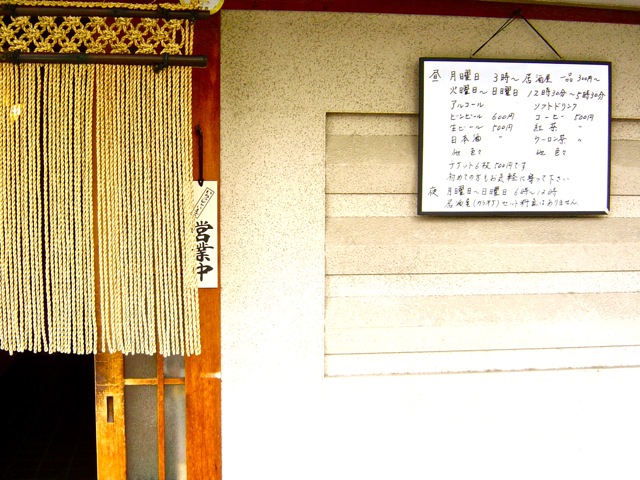 昼 月曜日 3時～居酒屋 一品300円～
火曜日～日曜日 12時30分～5時30分
アルコール ソフトドリンク
ビンビール 600円 コーヒー 500円
生ビール 500円 紅茶 〃
日本酒 〃 ウーロン茶 〃
他色々 他色々
チケット6枚500円です
初めての方もお気軽に寄って下さい
夜 月曜日～日曜日 6時～12時
居酒屋(カラオケ)セット料金はありません
営業中